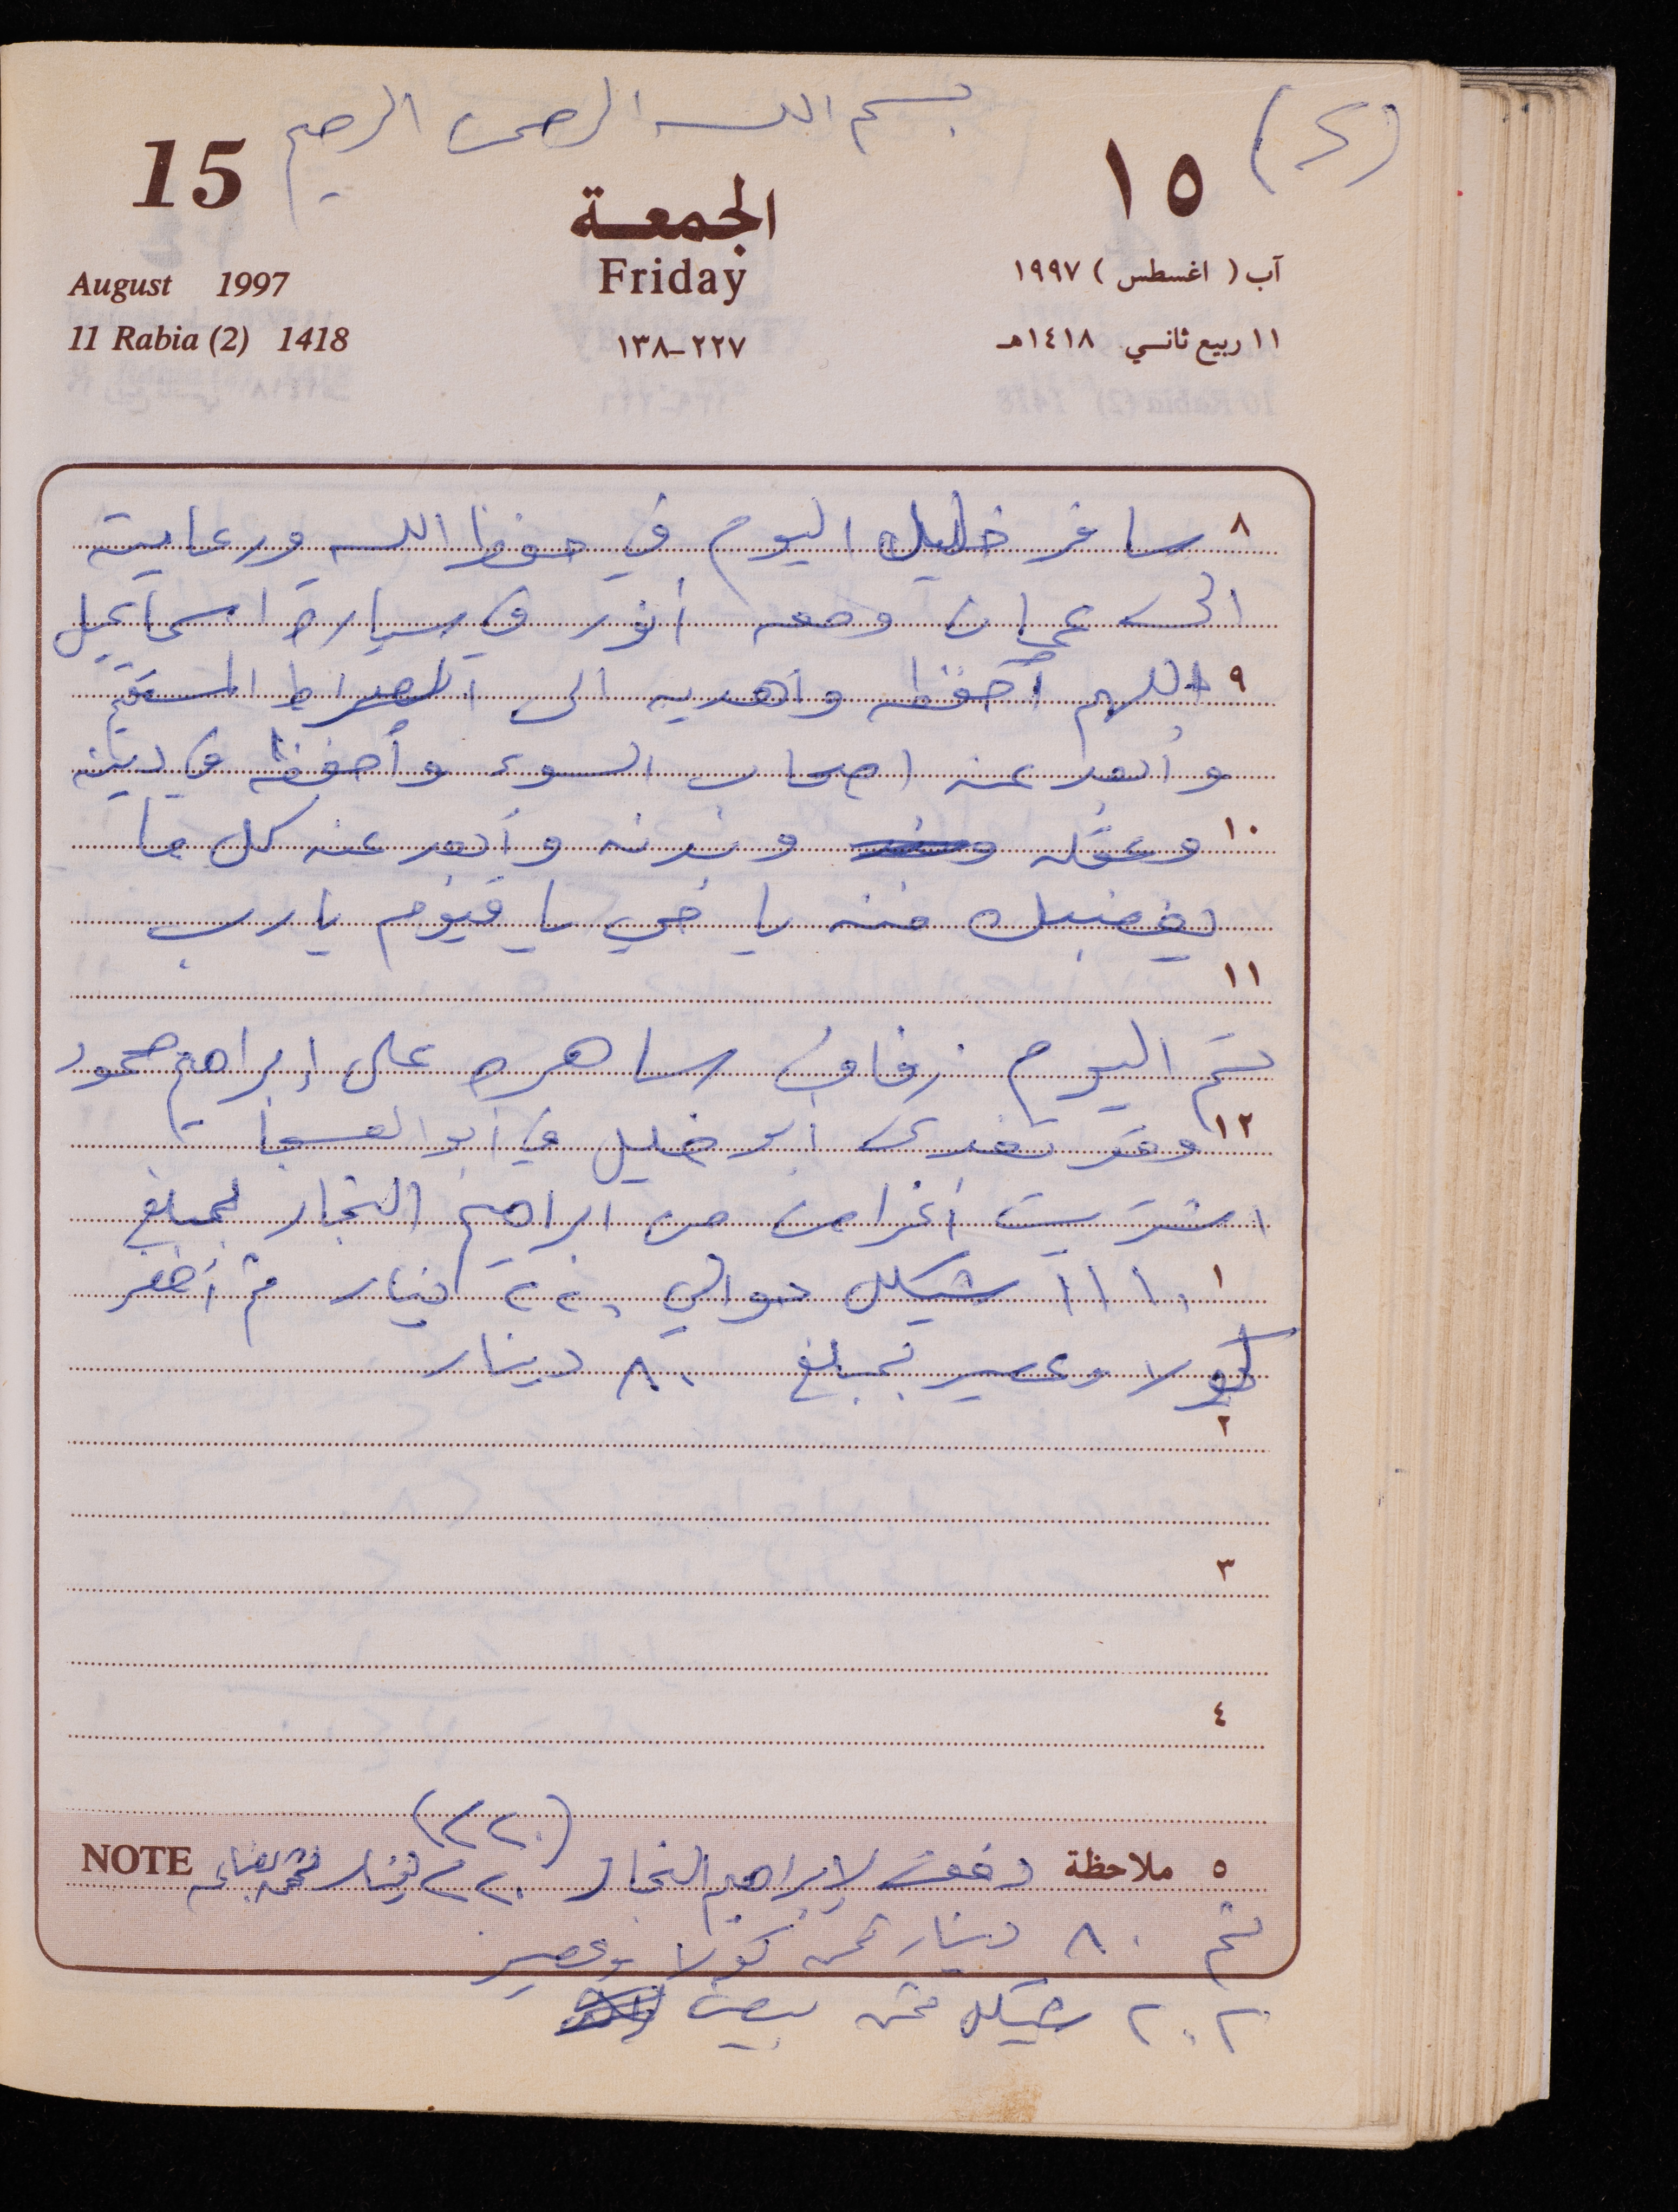 بسم الله الرحمن الرحيم
(٤)
15
١٥
الجمعة
Friday
August 1997
آب ( اغسطس ) ١٩٩٧
11 Rabia (2) 1418
٢٢٧-١٣٨
١١ ربيع ثاني ١٤١٨هـ
٨ سافر خليل اليوم في حفظ الله ورعايته
الى عمان ومعه أنور في سيارة اسماعيل
٩ اللهم أحفظه وأهديه الى الصراط المستقيم
وأبعد عنه اصحاب السوء وأحفظه في دينه
١٠ وعقله وبدنه وأبعد عنه كل ما
يغضبك منه يا حي يا قيوم يا رب
١١
تم اليوم زفاف ساهره على إبراهيم محمود
١٢ وقد تغدى أبو خليل في أبو العسجا
اشتريت أغراض من ابراهيم النجار بمبلغ
١ ١١١٠ شيكل حوالي ٢٢٠ دينار ثم أحضر
كولا وعصير بمبلغ ٨٠ دينار
٢
٣
٤
(٢٢٠)
٥ ملاحظة دفعت لإبراهيم النجار ٢٢٠ دينار ثمن بضاعه NOTE
ثم ٨٠ دينار ثمن كولا وعصير
٢٠٢ شيكل ثمن بيض